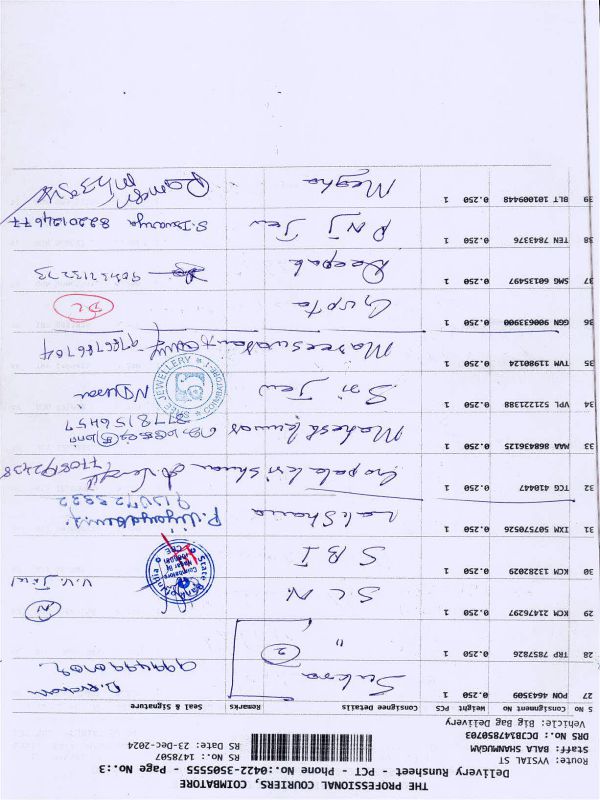 THE PROFESSIONAL COURIERS, COIMBATORE
Delivery Runsheet - PCT - Phone No.:0422-3505555 - Page No.:3
Route: VYSIAL ST
Staff: BALA SHANMUGAM
RS No.: 1478507
DRS No.: DCJB147850703
RS Date: 23-Dec-2024
Vehicle: Big Bag Delivery
S No Consignment No Weight PCS Consignee Details Remarks Seal & Signature
27 PON 4643509 0.250 1 Sukra 9994990102
28 TRP 7857826 0.250 1 " 2
29 KCM 21476297 0.250 1 S L N N V.V. Jewel
30 KCM 13282029 0.250 1 S B I State Bank of India Coimbatore CBE
31 IXM 507570526 0.250 1 Lali Sharia P. Vijayakumar
32 TCG 410447 0.250 1 Gopala krishnan
33 MAA 86846125 0.250 1 Mahesh kumar 8778156457
34 VPL 521221388 0.250 1 Sri Jew N Durai SREE JEWELLERY COIMBATORE-1
35 TVM 11980124 0.250 1 Mareeswaran 9766786704
36 GGN 900633900 0.250 1 Gupta DL
37 SMG 60135497 0.250 1 Deepak
38 TEN 7843376 0.250 1 P N J Jew S. Iswarya 8220124677
39 BLT 101009448 0.250 1 Megha Ramesh